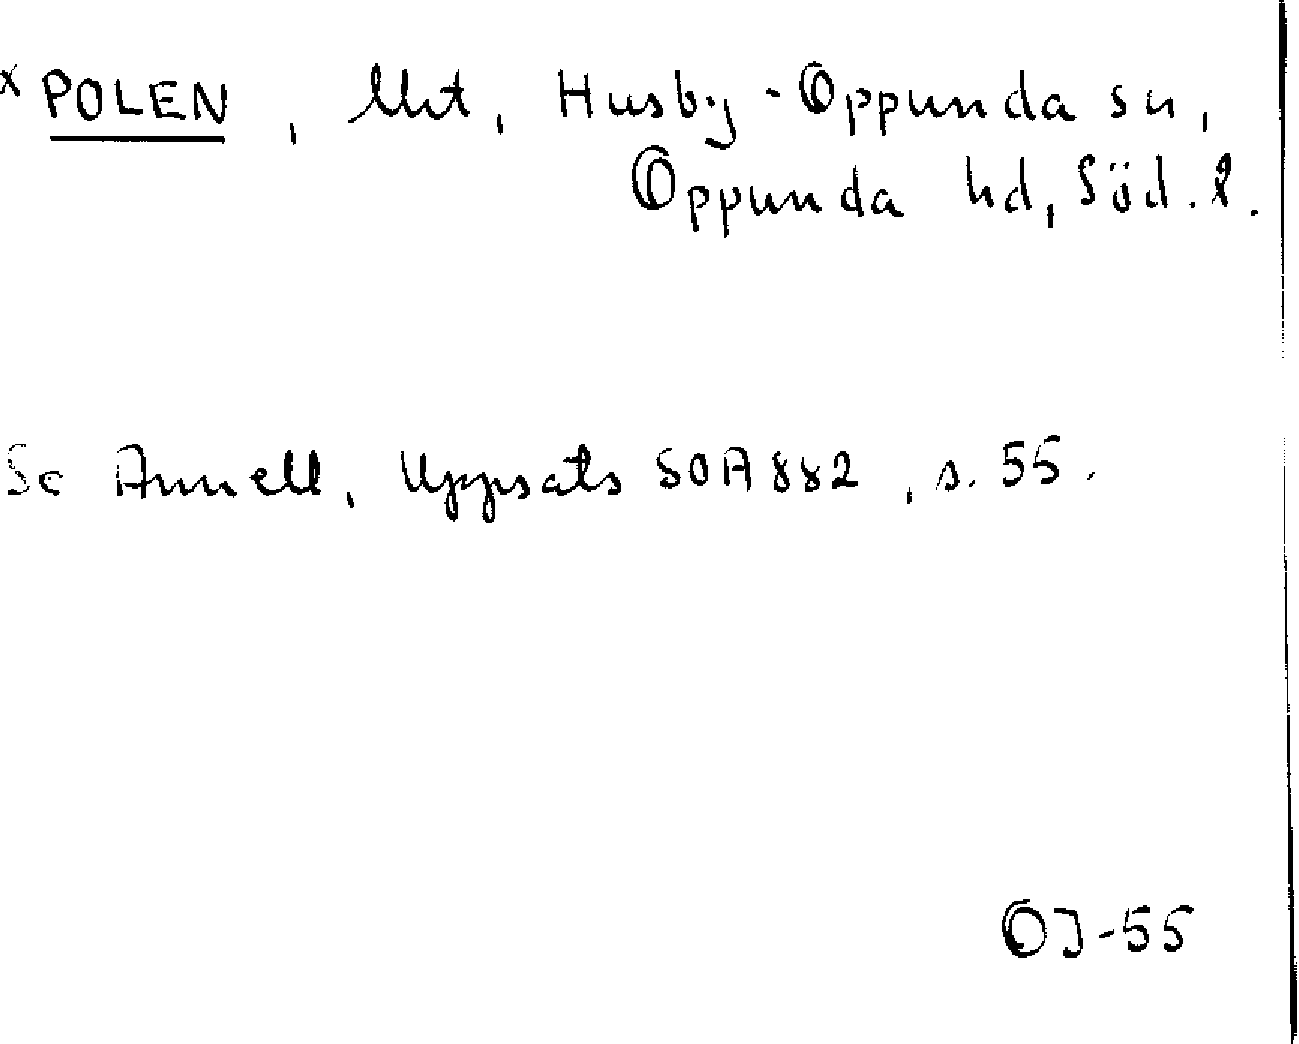 x POLEN, lht, Husby-Oppunda sn,
Oppunda hd, Söd. l.
Se Annell, Uppsats SOA 882, s. 55.
OJ-55